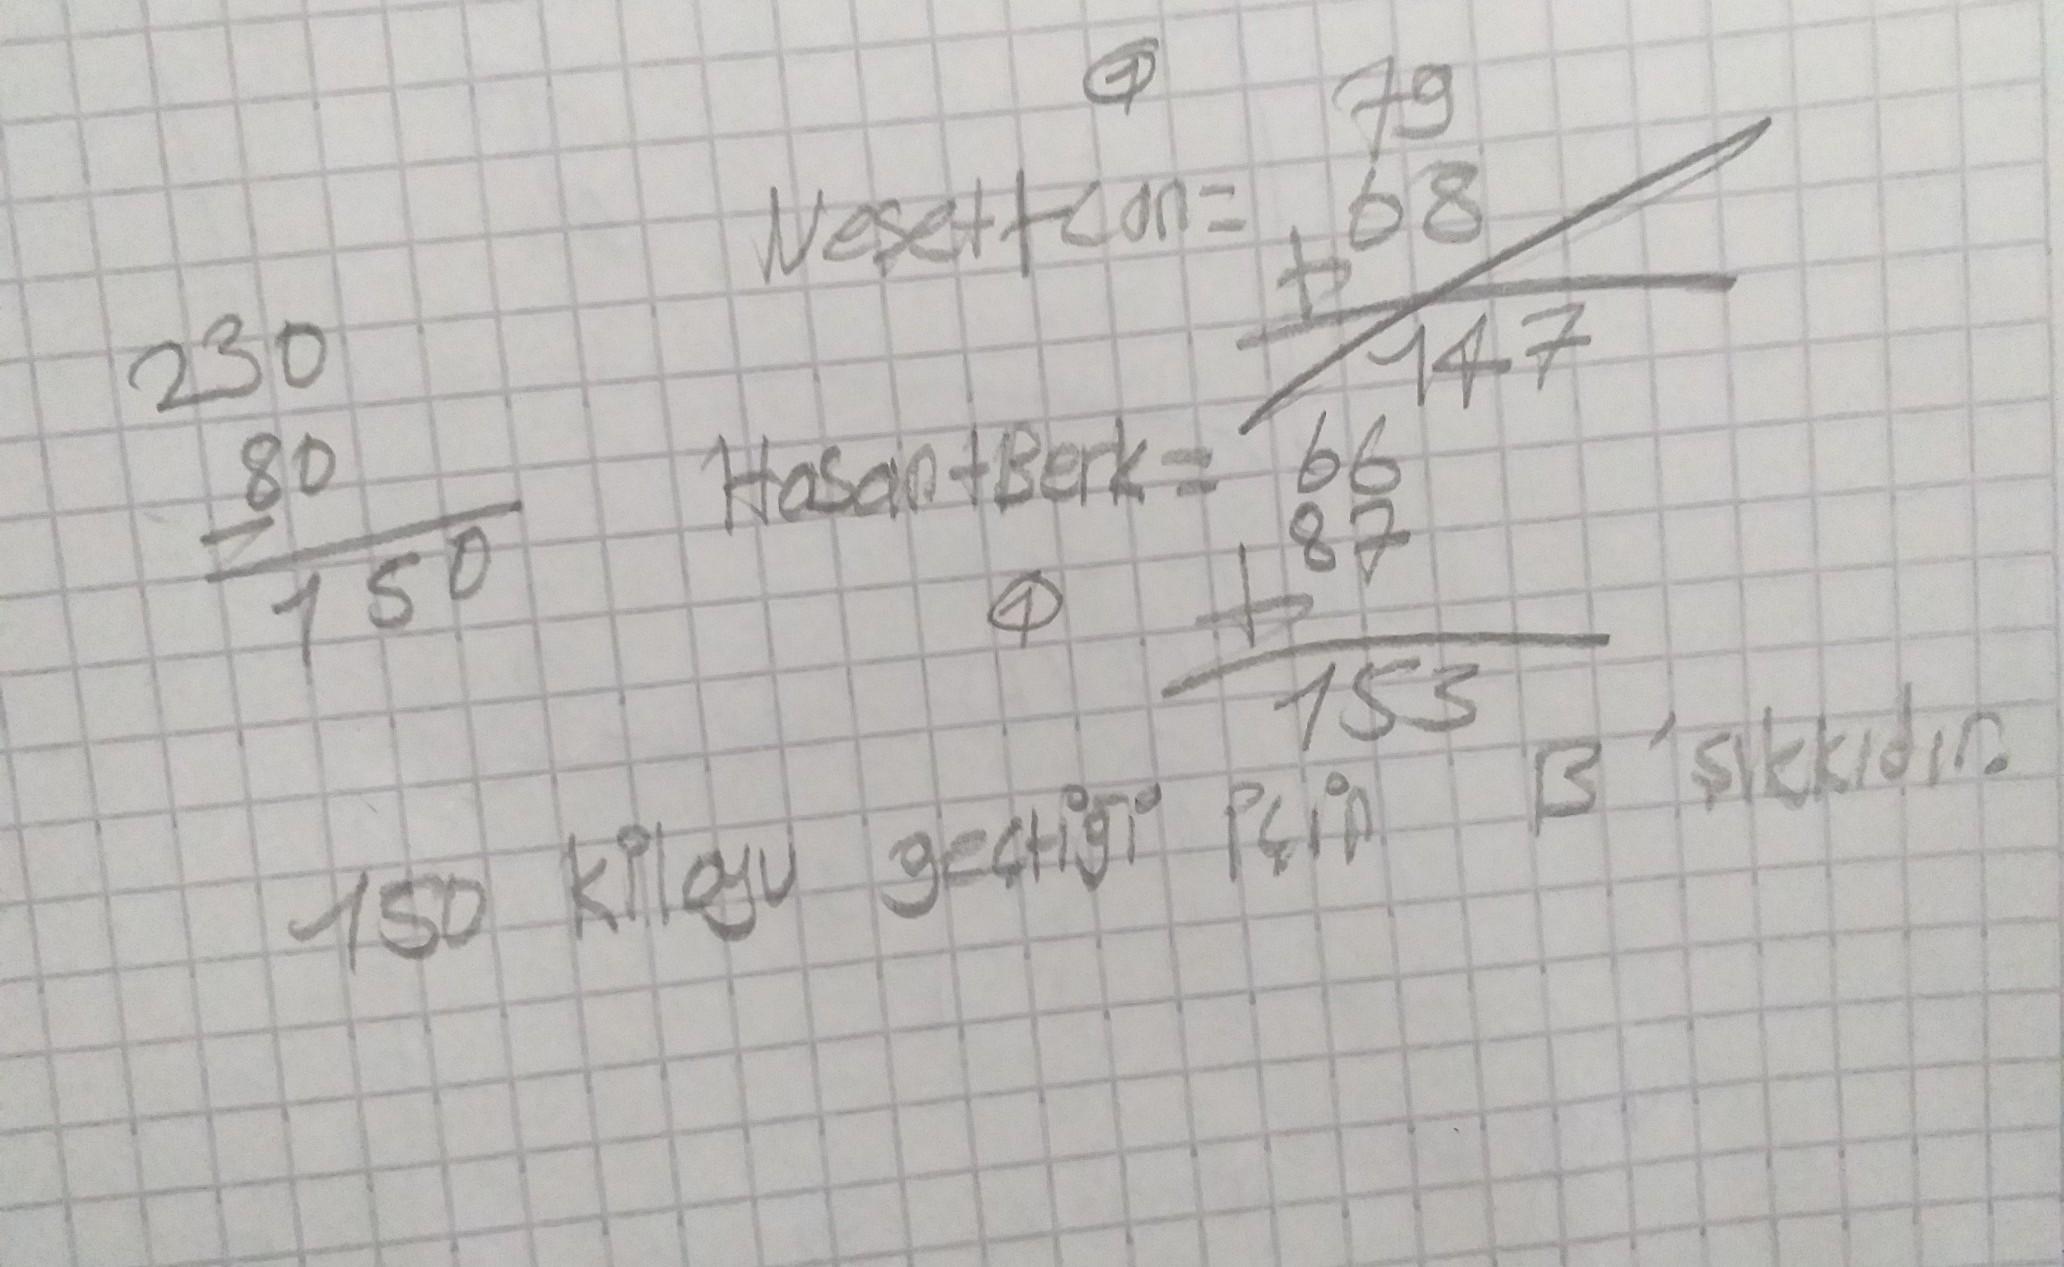 230
80
-
150
① 79
Neşet+Can= 68
+
147
Hasan+Berk= 66
87
① +
153
150 kiloyu geçtiği için B'şıkkıdır.